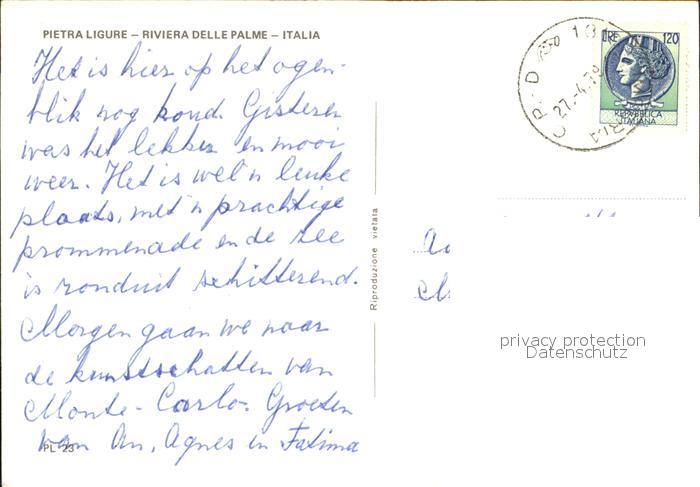 PIETRA LIGURE – RIVIERA DELLE PALME – ITALIA
Het is hier op het ogen-
blik nog koud. Gisteren
was het lekker en mooi
weer. Het is wel 'n leuke
plaats, met 'n prachtige
prommenade en de zee
is ronduit schitterend.
Morgen gaan we naar
de kunstschatten van
Monte-Carlo. Groeten
van An, Agnes en Fatima
PL 23
Riproduzione vietata
27.-4.79
LIRE 120
REPVBBLICA
ITALIANA
privacy protection
Datenschutz